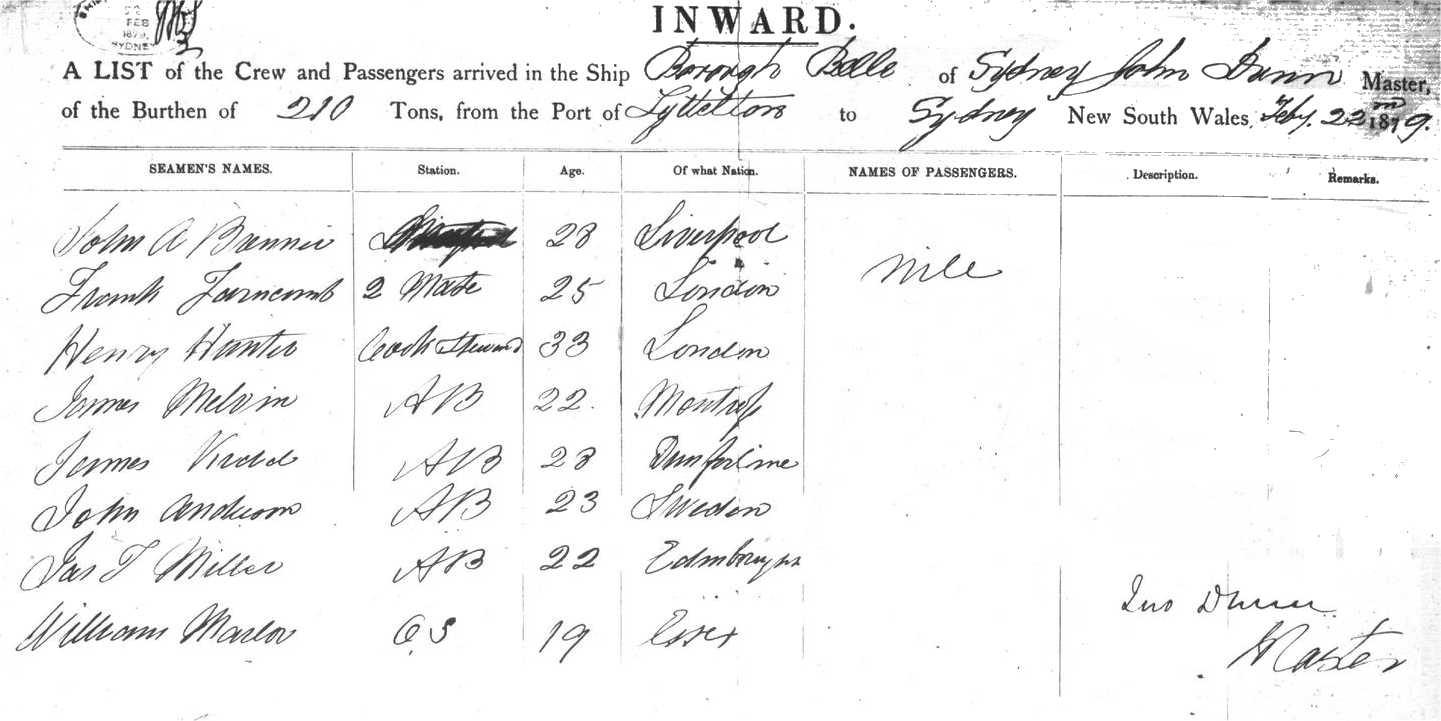 22
FEB
1879
SYDNEY
INWARD.
A LIST of the Crew and Passengers arrived in the Ship Borough Belle of Sydney John Dunn Master,
of the Burthen of 210 Tons, from the Port of Lyttelton to Sydney New South Wales, Feby. 22nd 1879.
SEAMEN'S NAMES. Station. Age. Of what Nation. NAMES OF PASSENGERS. Description. Remarks.
John A 28 Liverpool
Nill
Frank Farncomb 2 Mate 25 London
Henry Hunter Cook Steward 33 London
James Melvin AB 22. Montrose
James Kidd AB 28
John Anderson AB 23 Sweden
Jas T Miller AB 22
William OS 19 Essex
Jno Dunn
Master